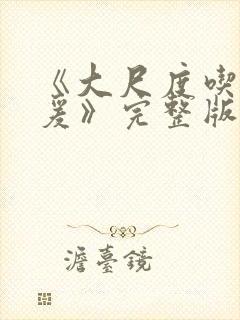 《大尺度喫
爰》完整版
澹臺鏡